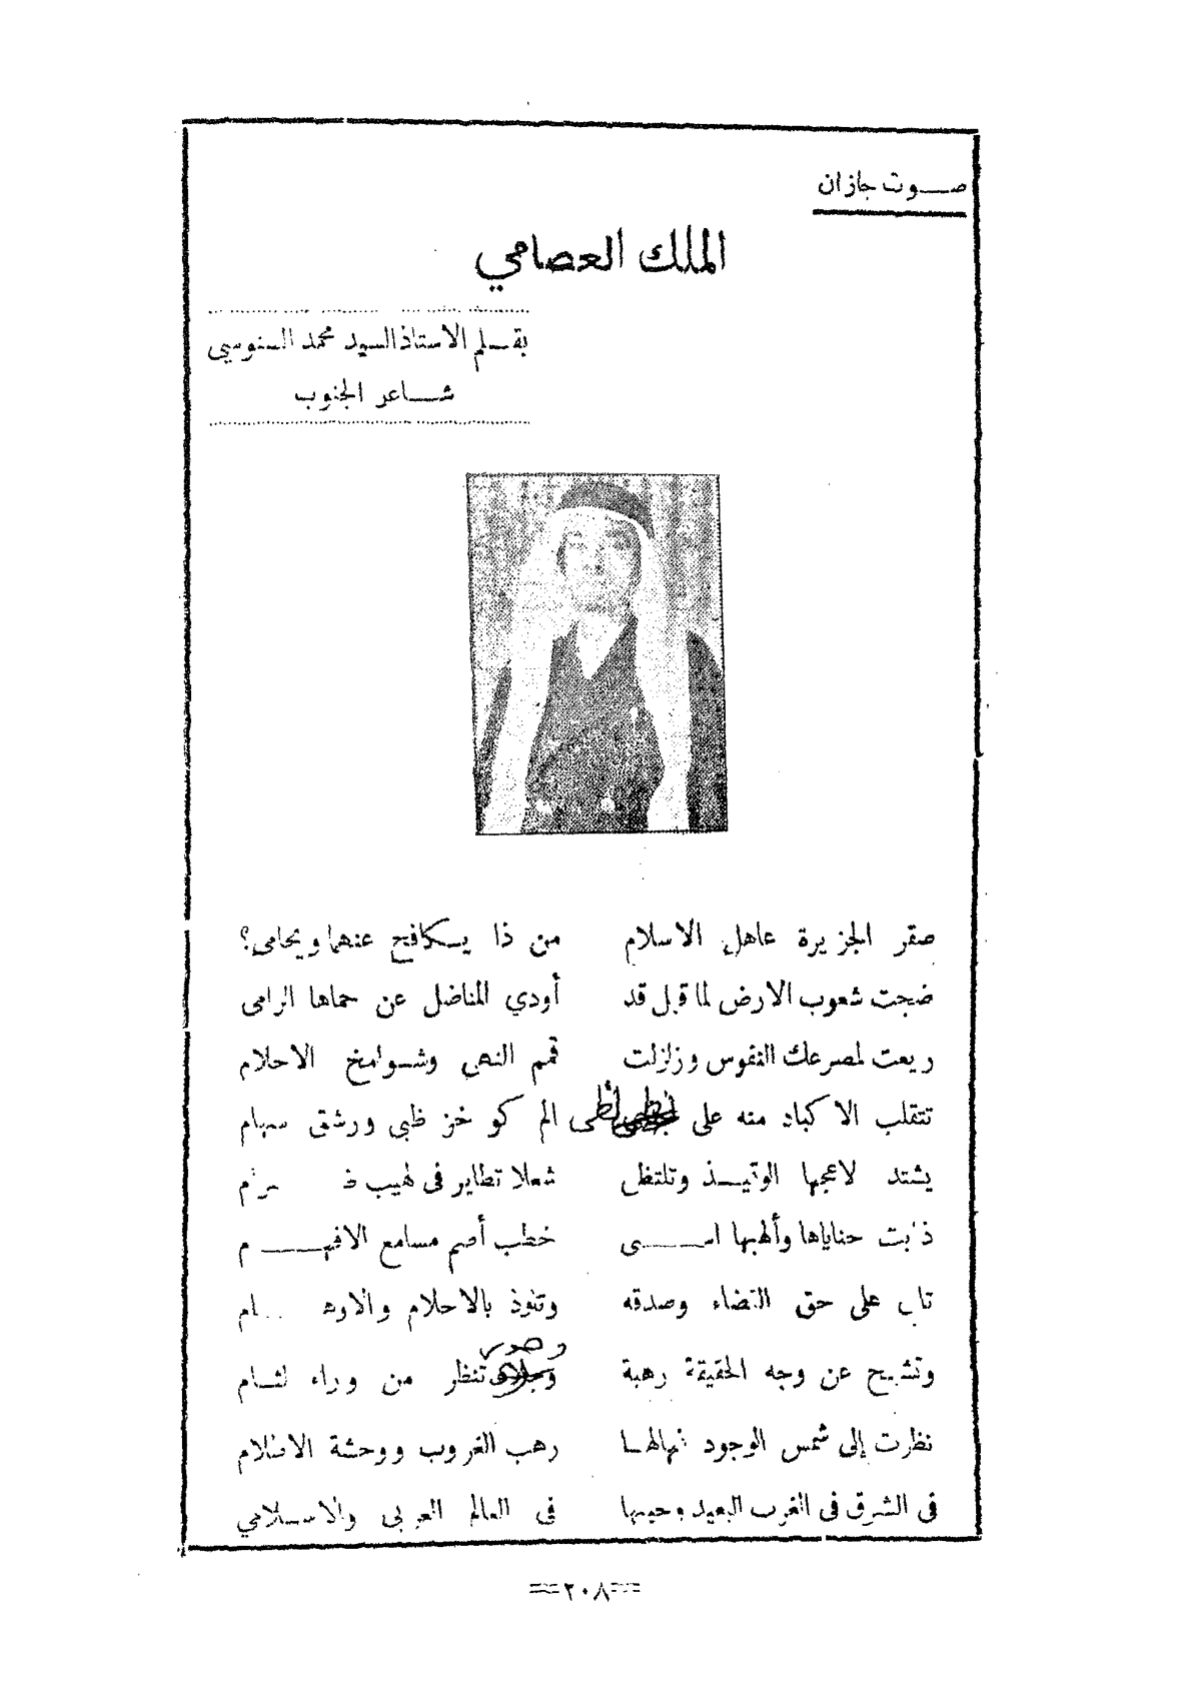 صوت جازان
الملك العصامي
بقلم الاستاذ السيد محمد السنوسي
شاعر الجنوب
صقر الجزيرة عاهل الاسلام من ذا يكافح عنهما ويحامى؟
ضجت شعوب الارض لما قيل قد أودي المناضل عن حماها الرامى
ريعت لمصرعك النفوس وزلزلت قمم النهى وشوامخ الاحلام
تتقلب الاكباد منه على لظى الم كوخز ظبى ورشق سهام
يشتد لاعجها الوقيذ وتلتظى شعلا تطاير فى لهيب ضرام
ذابت حناياها وألهبها اسى خطب أصم مسامع الافهام
تابى على حق القضاء وصدقه وتلوذ بالاحلام والاوهام
وتشيح عن وجه الحقيقة رهبة تنظر من وراء لثام
نظرت إلى شمس الوجود فهالها رهب الغروب ووحشة الاظلام
فى الشرق فى الغرب البعيد وحيها فى العالم العربى والاسلامي
==٢٠٨==